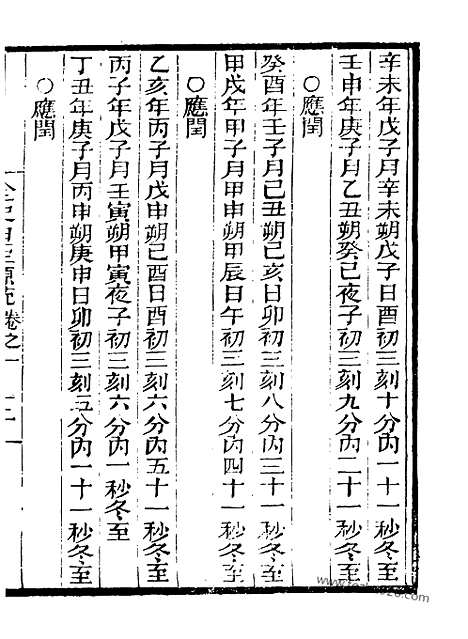 辛未年戊子月辛未朔戊子日酉初三刻十分內一十一秒冬至
壬申年庚子月乙丑朔癸巳夜子初三刻九分內二十一秒冬至
○應閏
癸酉年壬子月己丑朔己亥日卯初三刻八分內三十一秒冬至
甲戌年甲子月甲申朔甲辰日午初三刻七分內四十一秒冬至
○應閏
乙亥年丙子月戊申朔己酉日酉初三刻六分內五十一秒冬至
丙子年戊子月壬寅朔甲寅夜子初三刻六分內一秒冬至
丁丑年庚子月丙申朔庚申日卯初三刻五分內一十一秒冬至
○應閏
卷之一